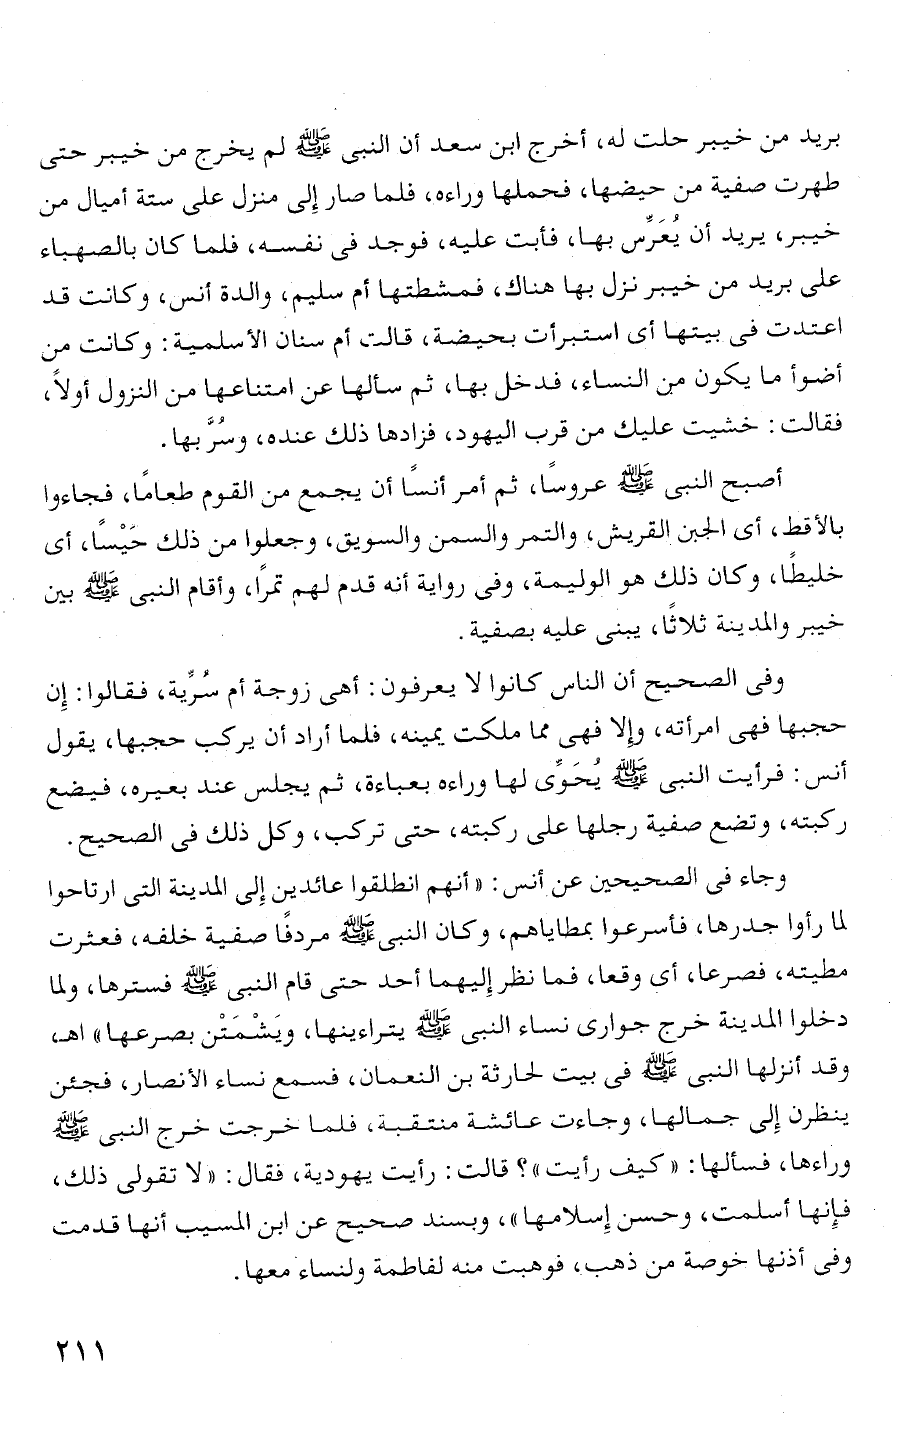 بريد من خيبر حلت له، أخرج ابن سعد أن النبى ﷺ لم يخرج من خيبر حتى
طهرت صفية من حيضها، فحملها وراءه، فلما صار إلى منزل على ستة أميال من
خيبر، يريد أن يُعَرِّس بها، فأبت عليه، فوجد فى نفسه، فلما كان بالصهباء
على بريد من خيبر نزل بها هناك، فمشطتها أم سليم، والدة أنس، وكانت قد
اعتدت فى بيتها أى استبرأت بحيضة، قالت أم سنان الأسلمية: وكانت من
أضوأ ما يكون من النساء، فدخل بها، ثم سألها عن امتناعها من النزول أولاً،
فقالت: خشيت عليك من قرب اليهود، فزادها ذلك عنده، وسُرَّ بها.
أصبح النبى ﷺ عروسًا، ثم أمر أنسًا أن يجمع من القوم طعامًا، فجاءوا
بالأقط، أى الجبن القريش، والتمر والسمن والسويق، وجعلوا من ذلك حَيْسًا، أى
خليطًا، وكان ذلك هو الوليمة، وفى رواية أنه قدم لهم تمرًا، وأقام النبى ﷺ بين
خيبر والمدينة ثلاثًا، يبنى عليه بصفية.
وفى الصحيح أن الناس كانوا لا يعرفون: أهى زوجة أم سُرِّية، فقالوا: إن
حجبها فهى امرأته، وإلا فهى مما ملكت يمينه، فلما أراد أن يركب حجبها، يقول
أنس: فرأيت النبى ﷺ يُحَوِّى لها وراءه بعباءة، ثم يجلس عند بعيره، فيضع
ركبته، وتضع صفية رجلها على ركبته، حتى تركب، وكل ذلك فى الصحيح.
وجاء فى الصحيحين عن أنس: «أنهم انطلقوا عائدين إلى المدينة التى ارتاحوا
لما رأوا جدرها، فأسرعوا بمطاياهم، وكان النبى ﷺ مردفًا صفية خلفه، فعثرت
مطيته، فصرعا، أى وقعا، فما نظر إليهما أحد حتى قام النبى ﷺ فسترها، ولما
دخلوا المدينة خرج جوارى نساء النبى ﷺ يتراءينها، ويَشْمَتْن بصرعها» اهـ،
وقد أنزلها النبى ﷺ فى بيت لحارثة بن النعمان، فسمع نساء الأنصار، فجئن
ينظرن إلى جمالها، وجاءت عائشة منتقبة، فلما خرجت خرج النبى ﷺ
وراءها، فسألها: «كيف رأيت»؟ قالت: رأيت يهودية، فقال: «لا تقولى ذلك،
فإنها أسلمت، وحسن إسلامها»، وبسند صحيح عن ابن المسيب أنها قدمت
وفى أذنها خوصة من ذهب، فوهبت منه لفاطمة ولنساء معها.
٢١١